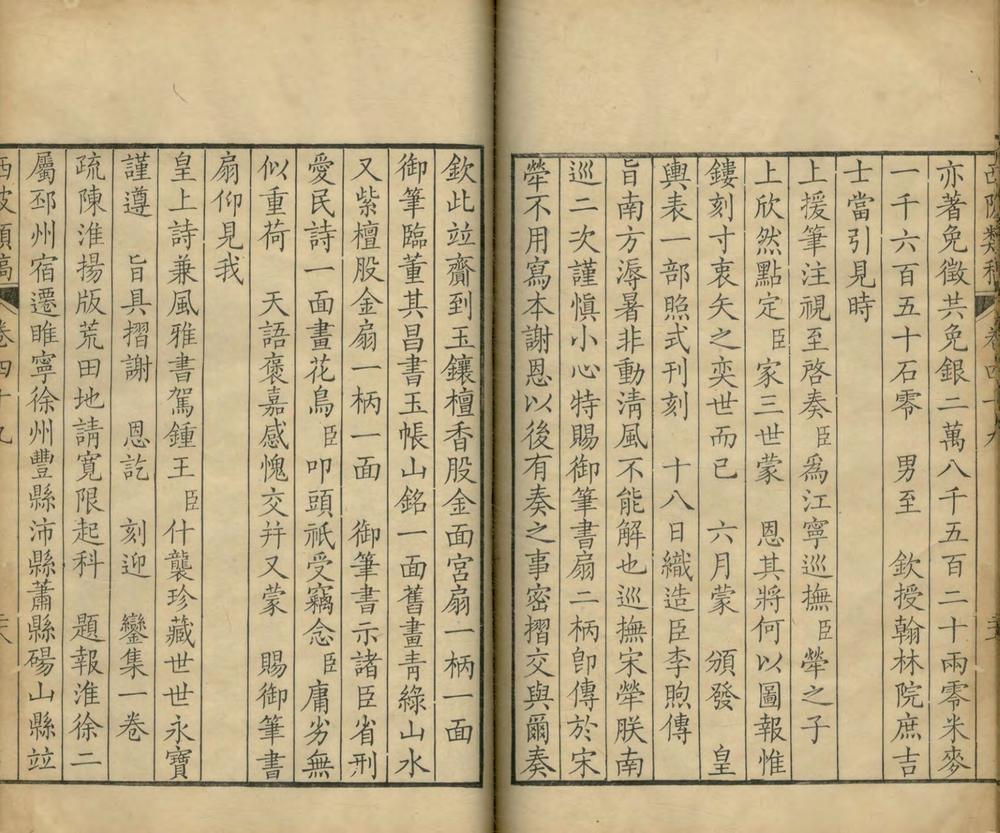 西陂類稿 卷四十九
亦著免徵共免銀二萬八千五百二十兩零米麥
一千六百五十石零 男至 欽授翰林院庶吉
士當引見時
上援筆注視至啓奏臣爲江寧巡撫臣犖之子
上欣然點定臣家三世蒙 恩其將何以圖報惟
鏤刻寸衷矢之奕世而已 六月蒙 頒發 皇
輿表一部照式刊刻 十八日織造臣李煦傳
旨南方溽暑非動淸風不能解也巡撫宋犖朕南
巡二次謹愼小心特賜御筆書扇二柄卽傳於宋
犖不用寫本謝恩以後有奏之事密摺交與爾奏
欽此竝齎到玉鑲檀香股金面宮扇一柄一面
御筆臨董其昌書玉帳山銘一面舊畫青綠山水
又紫檀股金扇一柄一面 御筆書示諸臣省刑
愛民詩一面畫花鳥臣叩頭祇受竊念臣庸劣無
似重荷 天語褒嘉感愧交幷又蒙 賜御筆書
扇仰見我
皇上詩兼風雅書駕鍾王臣什襲珍藏世世永寶
謹遵 旨具摺謝 恩訖 刻迎 鑾集一卷
疏陳淮揚版荒田地請寬限起科 題報淮徐二
屬邳州宿遷睢寧徐州豐縣沛縣蕭縣碭山縣竝
西陂類稿 卷四十九